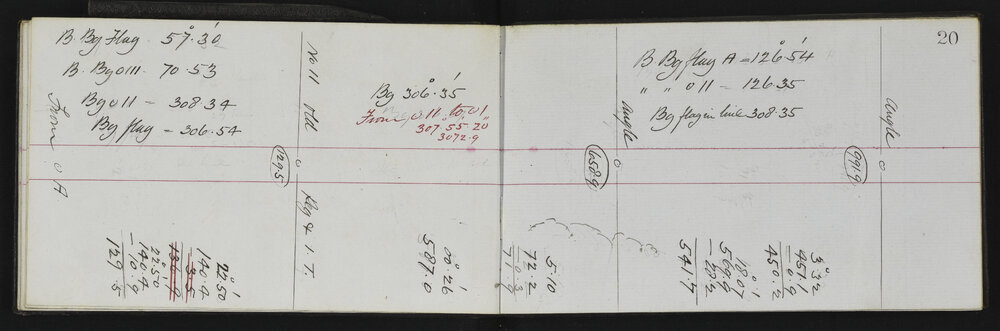 20
B. Bg Flag - 57°.30'
B. Bg o 11. 70.53
Bg o 11 - 308.34
Bg flag = 306.54
From o A
No 11 old
Peg & I.T.
129.5
22°.50'
140.4
- 3.5
136.9
22.50
140.4
- 10.9
129.5
Bg 306°.35'
From o 11 to o 1
307° 55' 20"
3072.9
00°.26'
587.0
B. Bg flag A = 126°.54'
" " o 11 - 126.35
Bg flag in line 308.35
Angle
658.9
5.10
72.2
- 0.3
71.9
18°.07'
569.9
541.7
Angle
991.9
3°.32'
451.1
- 0.9
450.2